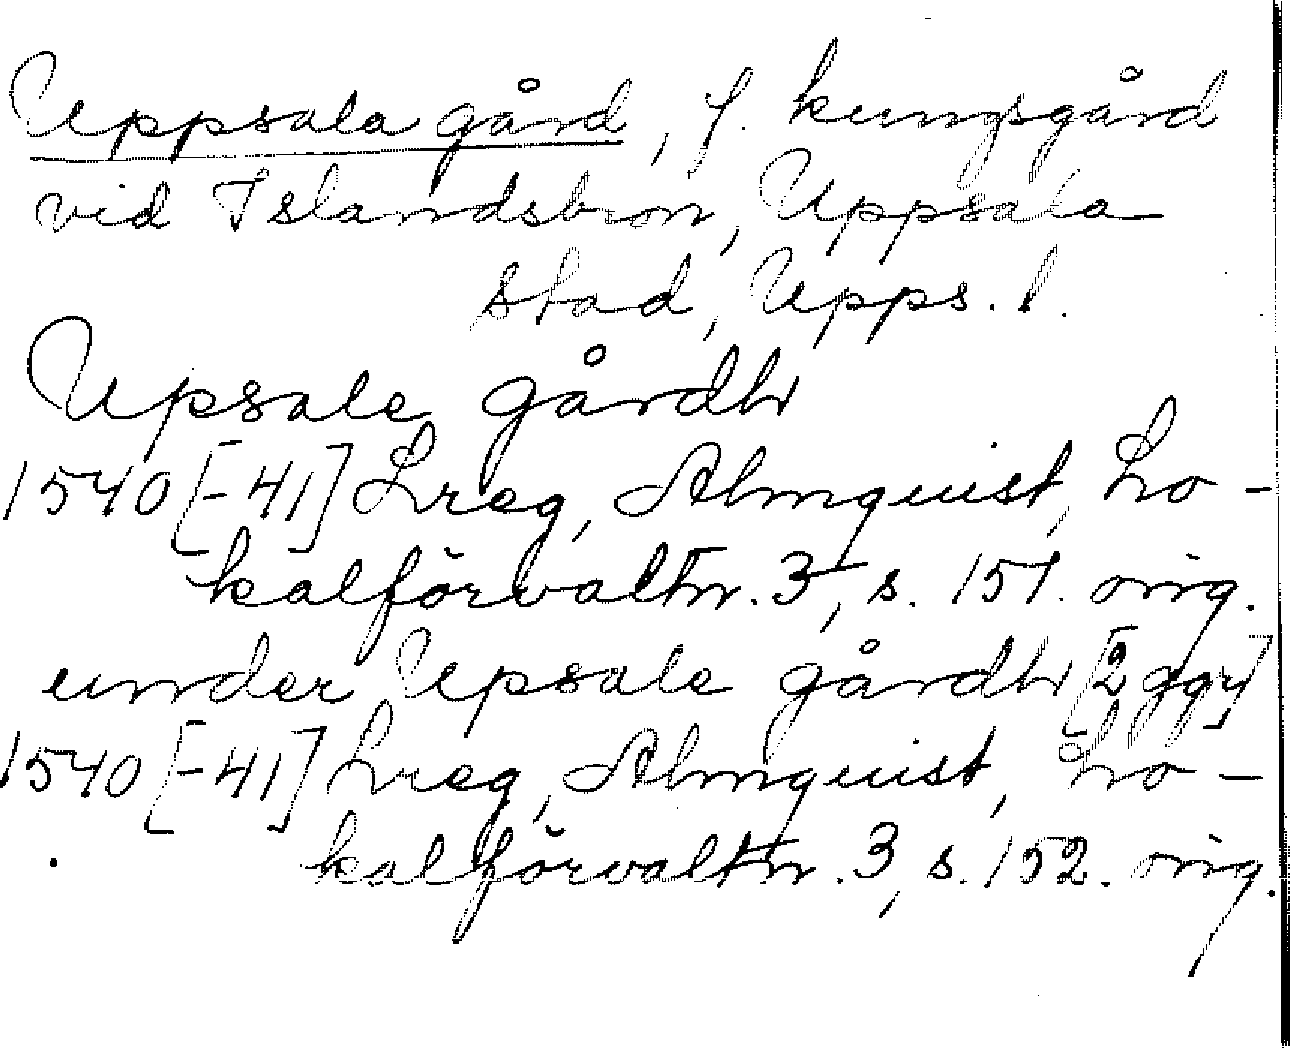 Uppsala gård, f. kungsgård
vid Islandsbron, Uppsala
stad, Upps. l.
Upsale gårdh
1540 [-41] Lreg, Almquist, Lo-
kalförvaltn. 3, s. 151. orig.
under Upsale gårdh [2 ggr]
1540 [-41] Lreg, Almquist, Lo-
kalförvaltn. 3, s. 152. orig.